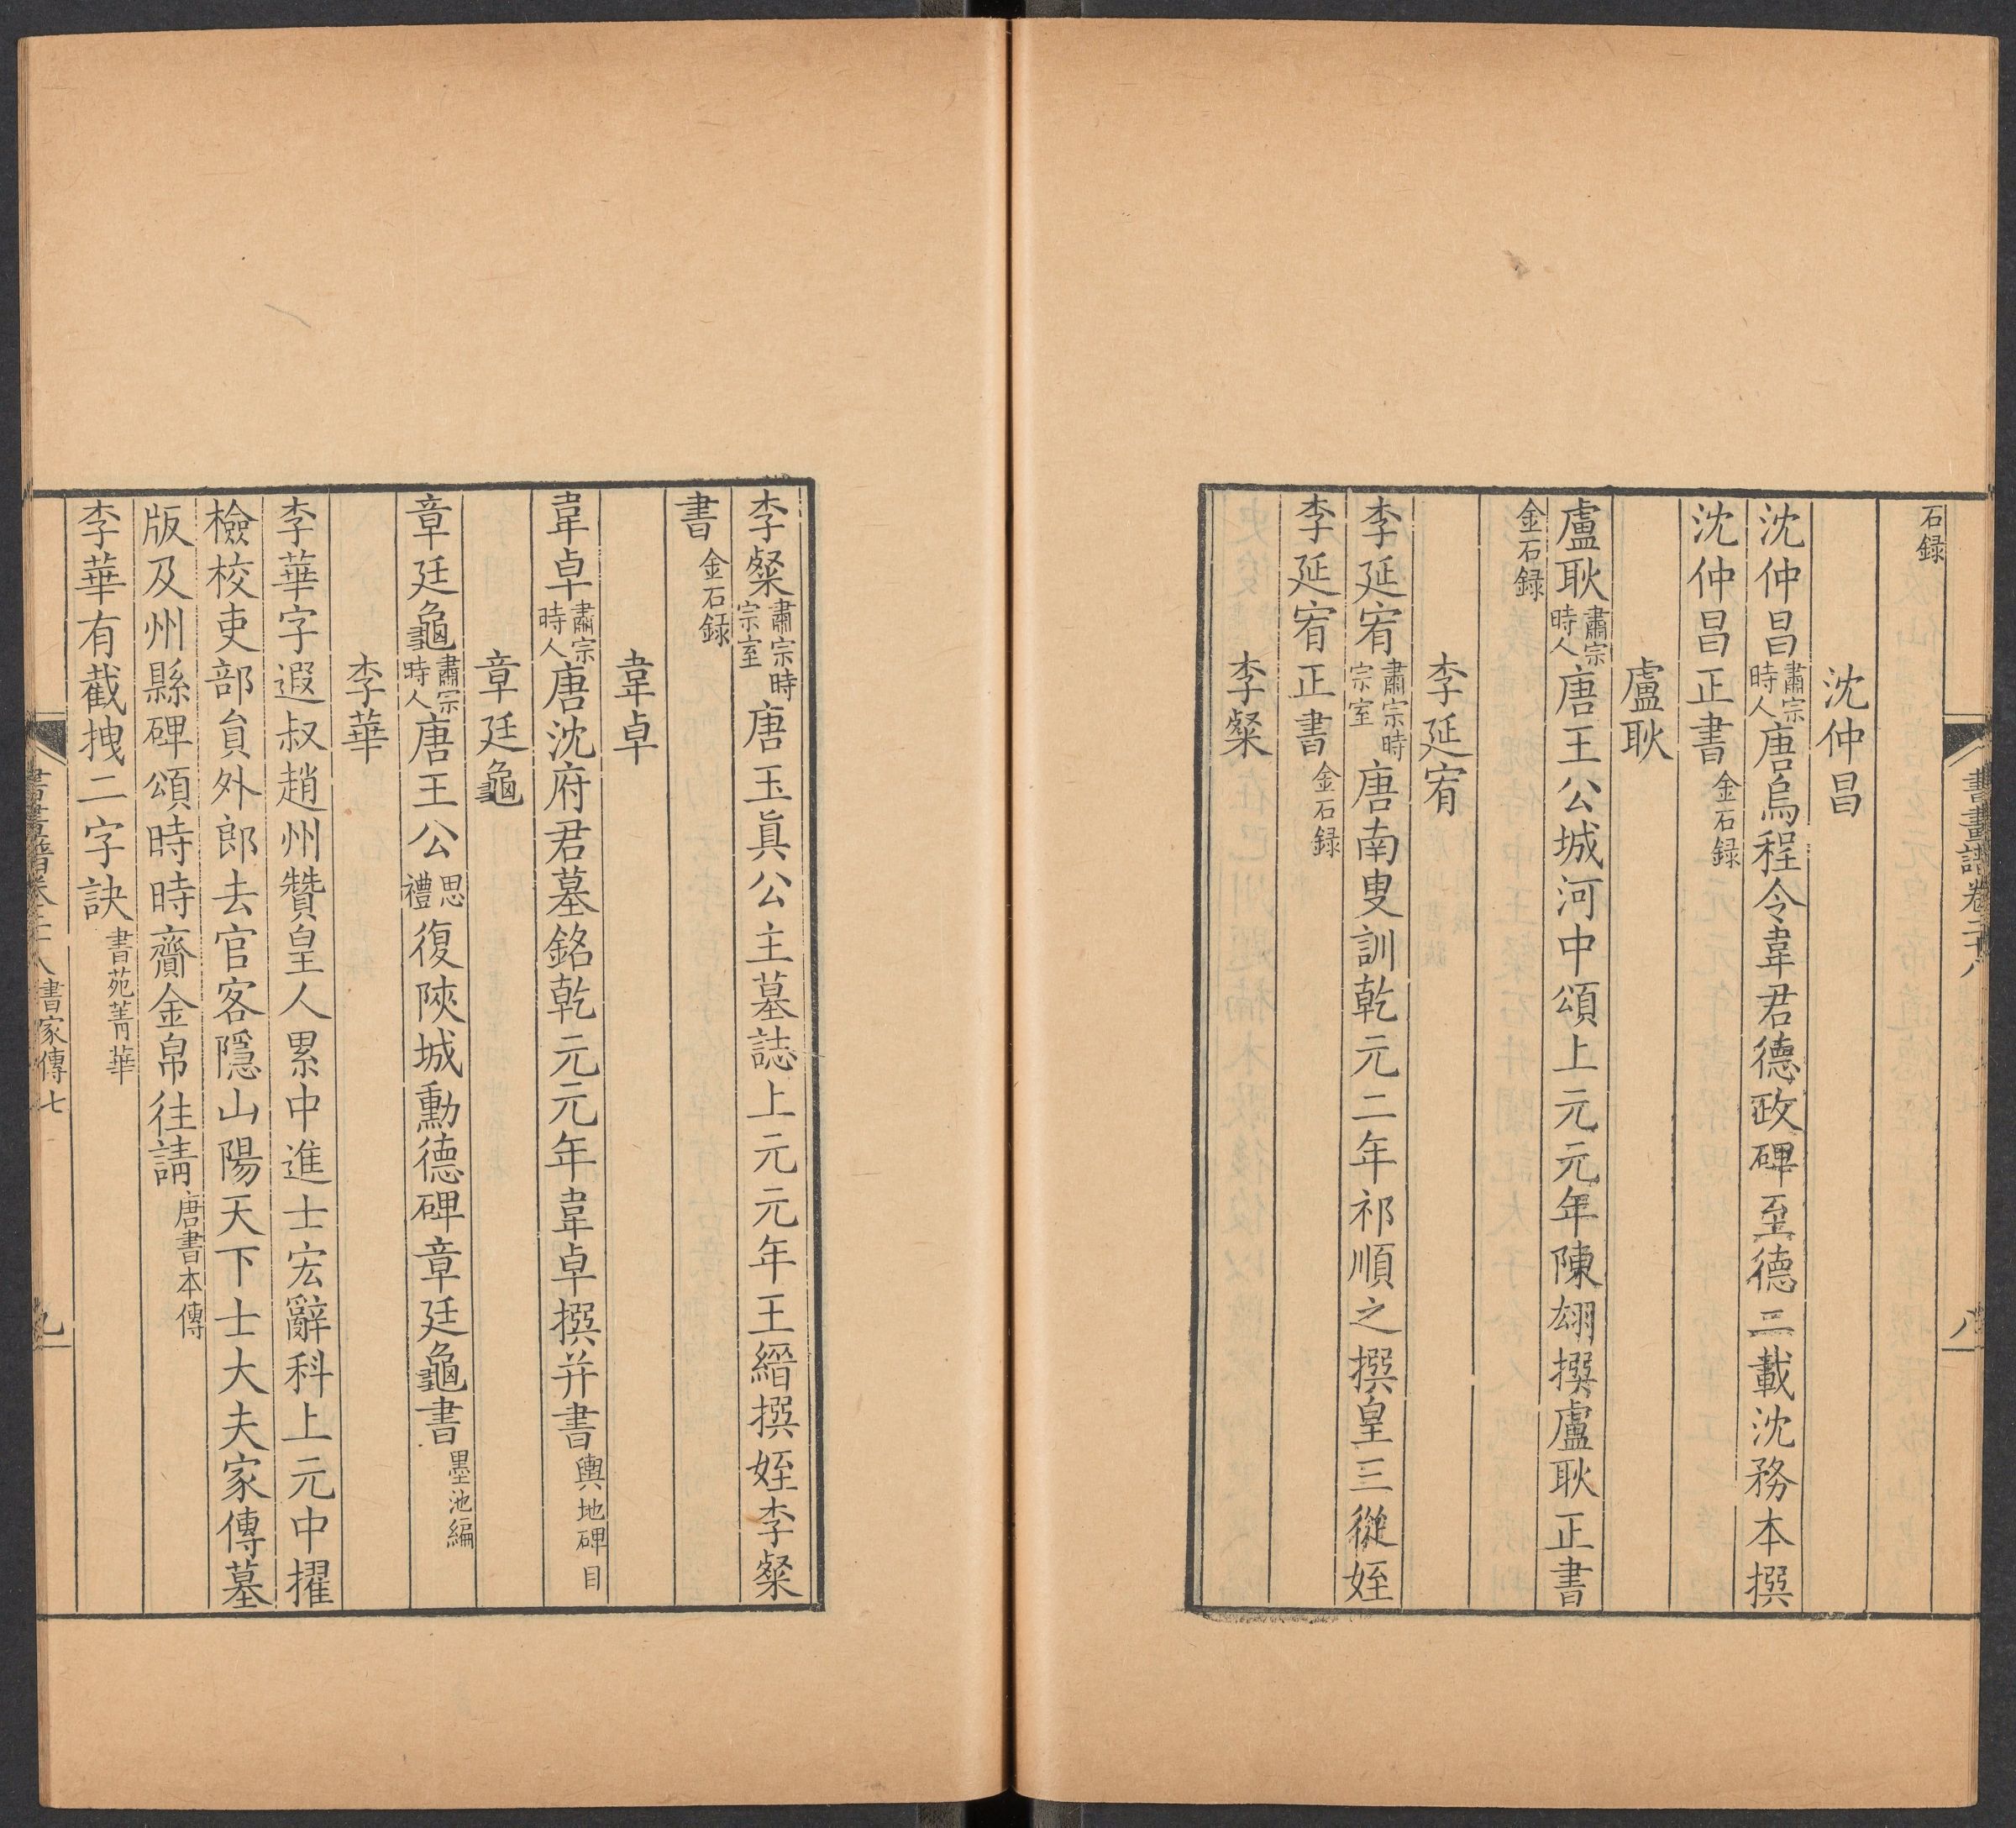 書畫譜卷二十八
八
石録
沈仲昌
沈仲昌肅宗時人唐烏程令韋君德政碑至德二載沈務本撰
沈仲昌正書金石録
盧耿
盧耿肅宗時人唐王公城河中頌上元元年陳翃撰盧耿正書
金石録
李延宥
李延宥肅宗時宗室唐南叟訓乾元二年祁順之撰皇三從姪
李延宥正書金石録
李粲
李粲肅宗時宗室唐玉真公主墓誌上元元年王縉撰姪李粲
書金石録
韋卓
韋卓肅宗時人唐沈府君墓銘乾元元年韋卓撰并書輿地碑目
章廷龜
章廷龜肅宗時人唐王公思禮復陝城勳德碑章廷龜書墨池編
李華
李華字遐叔趙州贊皇人累中進士宏辭科上元中擢
檢校吏部貟外郎去官客隱山陽天下士大夫家傳墓
版及州縣碑頌時時齎金帛往請唐書本傳
李華有截拽二字訣書苑菁華
書畫譜卷二十八 書家傳七
九